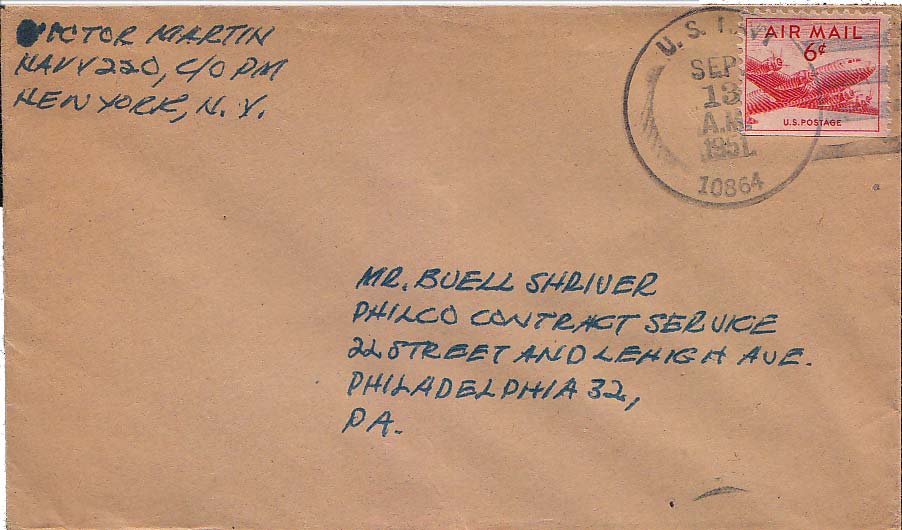 VICTOR MARTIN
NAVY 220, C/O PM
NEW YORK, N. Y.
U. S. NAVY
SEP
13
A.M.
1951
10864
AIR MAIL
6¢
U.S. POSTAGE
MR. BUELL SHRIVER
PHILCO CONTRACT SERVICE
22 STREET AND LEHIGH AVE.
PHILADELPHIA 32,
PA.